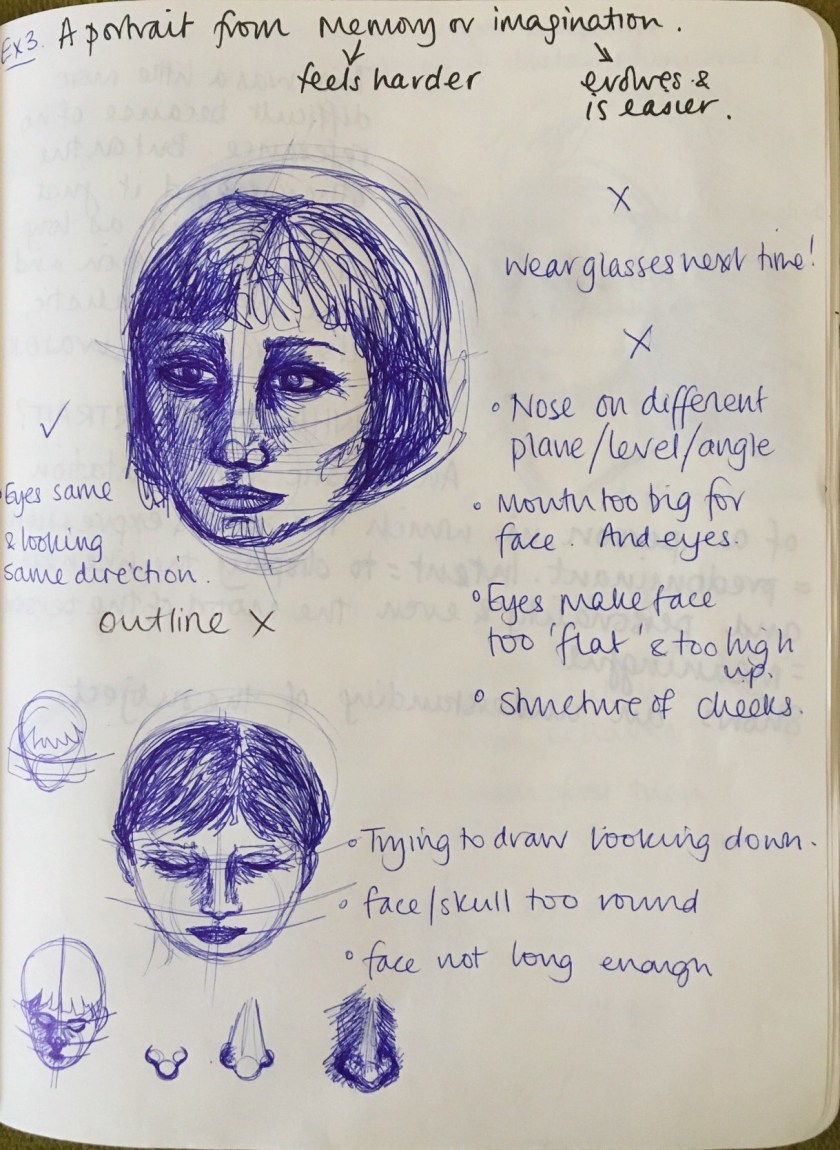 Ex3. A portrait from memory or imagination.
feels harder
evolves &
is easier.
X
Wear glasses next time!
X
• Nose on different
plane/level/angle
• Mouth too big for
face. And eyes.
• Eyes make face
too 'flat' & too high
up.
• Structure of cheeks.
✓
• Eyes same
& looking
same direction.
outline X
• Trying to draw looking down.
• face/skull too round
• face not long enough